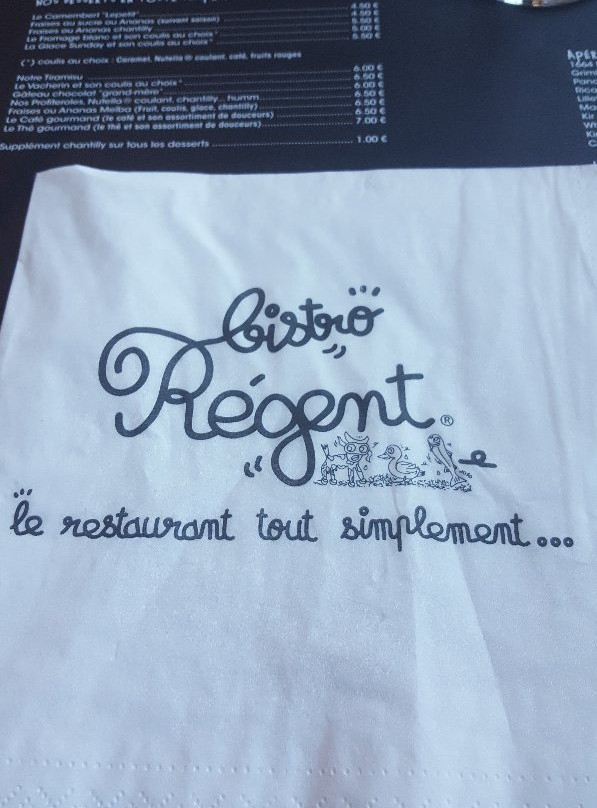 NOS DESSERTS
Le Camembert "Lepetit" 4.50 €
Fraises au sucre ou Ananas (suivant saison) 4.50 €
Fraises ou Ananas chantilly 5.50 €
Le Fromage blanc et son coulis au choix* 5.00 €
La Glace Sunday et son coulis au choix* 5.50 €
(*) coulis au choix : Caramel, Nutella ® coulant, café, fruits rouges
Notre Tiramisu 6.00 €
Le Vacherin et son coulis au choix* 6.50 €
Gâteau chocolat "grand mère" 6.00 €
Nos Profiteroles, Nutella ® coulant, chantilly... humm 6.50 €
Fraises ou Ananas Melba (Fruit, coulis, glace, chantilly) 6.50 €
Le Café gourmand (le café et son assortiment de douceurs) 6.50 €
Le Thé gourmand (le thé et son assortiment de douceurs) 7.00 €
Supplément chantilly sur tous les desserts 1.00 €
APÉR
1664
Grim
Rica
Kir
Kir
bistro
Régent ®
le restaurant tout simplement...